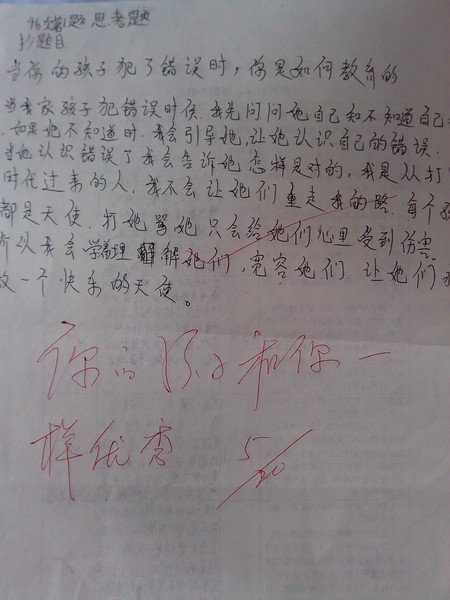 思考题
抄题目
当你的孩子犯了错误时，你是如何教育的
当我家孩子犯错误时侯.我先问问她自己知不知道自己
.如果她不知道时.我会引导她,让她认识自己的错误.
当她认识错误了我会告诉她怎样是对的,我是从打
时代过来的人，我不会让她们重走我的路.每个孩
都是天使.打她骂她只会给她们心里受到伤害
所以我会学着理解她们,宽容她们.让她们
做一个快乐的天使。
你的孩子和你一
样优秀 5/20